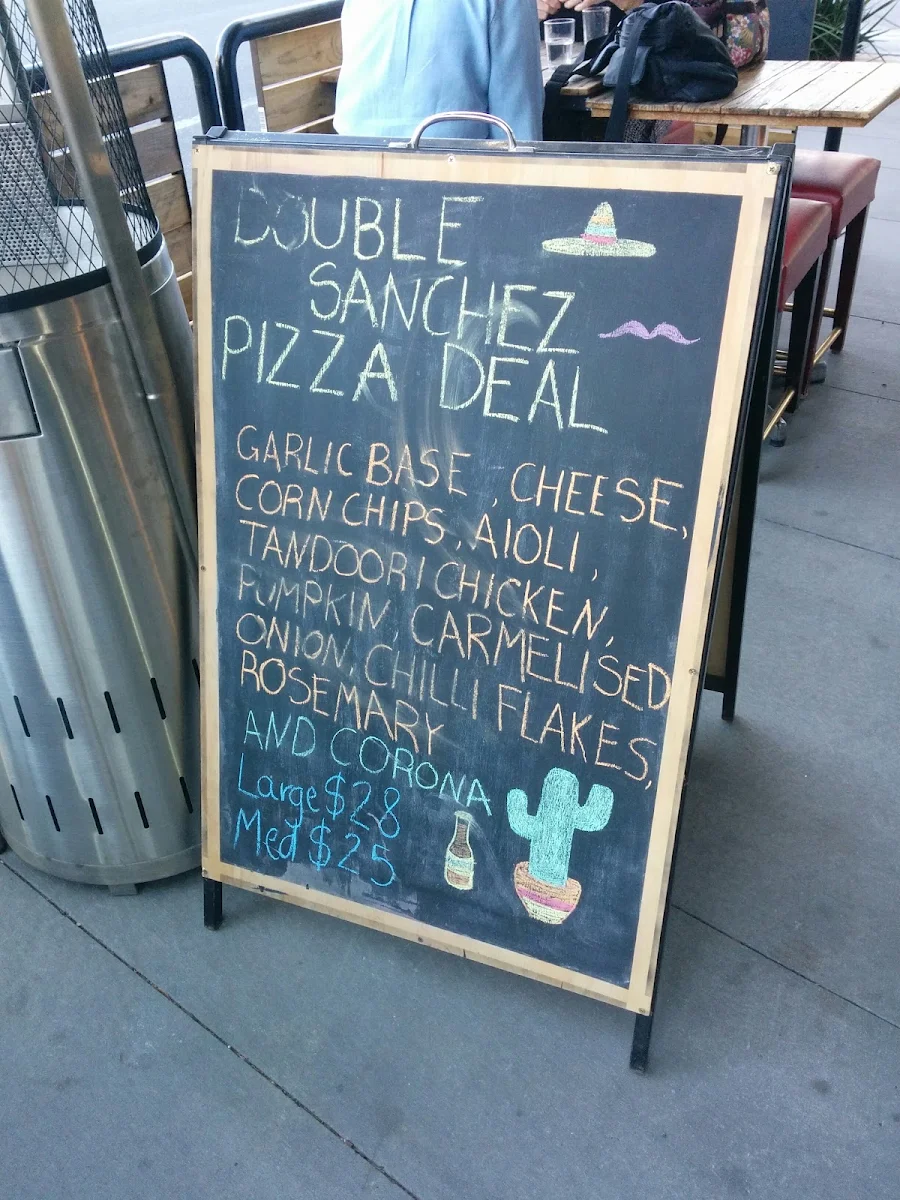 DOUBLE
SANCHEZ
PIZZA DEAL
GARLIC BASE , CHEESE,
CORN CHIPS, AIOLI,
TANDOORI CHICKEN,
PUMPKIN, CARMELISED
ONION, CHILLI FLAKES,
ROSEMARY
AND CORONA
Large $28
Med $25